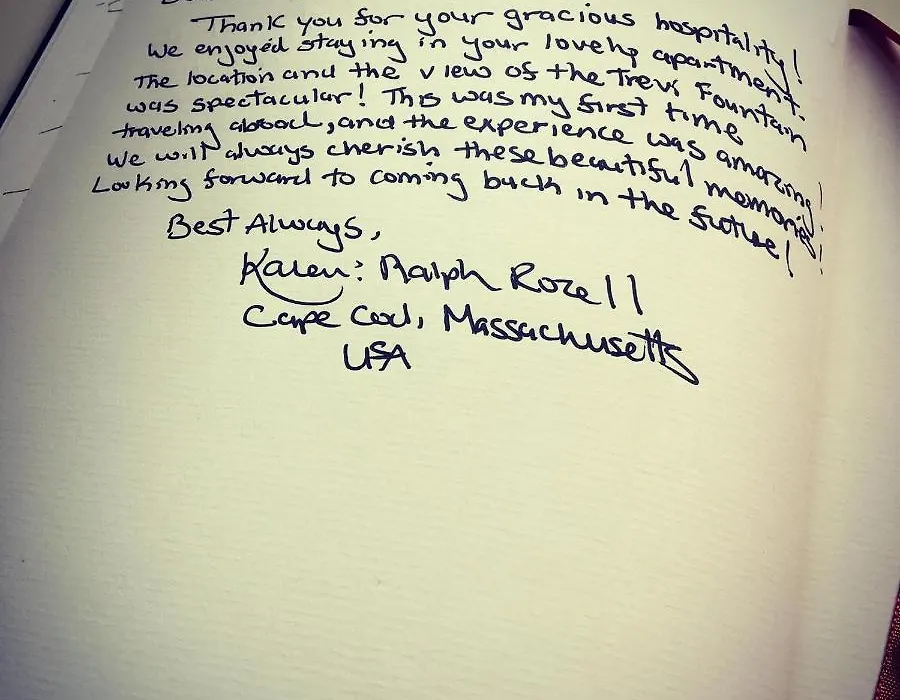 Thank you for your gracious hospitality!
We enjoyed staying in your lovely apartment.
The location and the view of the Trevi Fountain
was spectacular! This was my first time
traveling abroad, and the experience was amazing!
We will always cherish these beautiful memories!
Looking forward to coming back in the future!
Best Always,
Karen & Ralph Rozell
Cape Cod, Massachusetts
USA